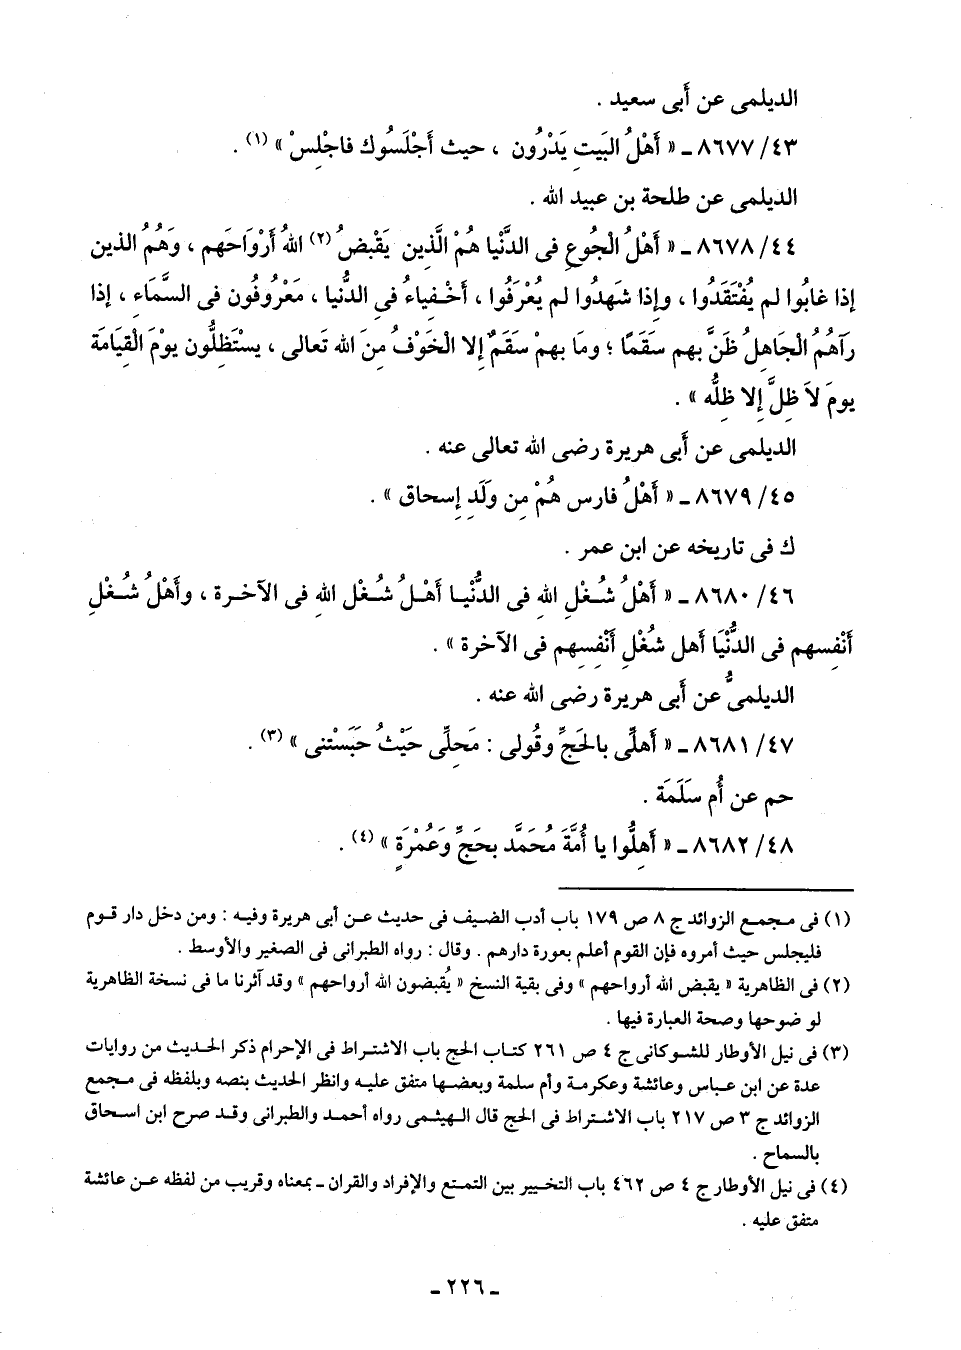 الديلمى عن أبى سعيد .
٤٣/ ٨٦٧٧ ـ « أَهْلُ البَيتِ يَدْرُون ، حيث أَجْلَسُوك فاجْلِسْ » (١) .
الديلمى عن طلحة بن عبيد الله .
٤٤/ ٨٦٧٨ ـ « أَهْلُ الْجُوعِ فى الدَّنْيا هُمْ الَّذِين يَقْبْضُ (٢) اللهُ أَرْوَاحَهم ، وَهُمُ الذين
إذا غابُوا لم يُفْتَقَدُوا ، وإذا شهَدُوا لم يُعْرَفُوا ، أَخْفياءُ فى الدُّنيا ، مَعْرُوفُون فى السَّماءِ ، إذا
رآهُمُ الْجَاهِلُ ظَنَّ بهم سَقَمًا ؛ وما بهمْ سَقَمٌ إلا الْخَوْفُ مِنَ الله تَعالى ، يستَظِلُّون يومَ الْقِيَامَة
يومَ لاَ ظِلَّ إلا ظِلُّه » .
الديلمى عن أبى هريرة رضى الله تعالى عنه .
٤٥/ ٨٦٧٩ ـ « أَهْلُ فارس هُمْ مِن ولَدِ إسحاق » .
ك فى تاريخه عن ابن عمر .
٤٦/ ٨٦٨٠ ـ « أَهْلُ شُغْلِ اللهِ فى الدُّنْيا أَهْلُ شُغْل اللهِ فى الآخرة ، وأَهْلُ شُغْلِ
أَنْفِسهم فى الدُّنْيَا أهل شُغْلِ أَنْفِسِهم فى الآخرة » .
الديلمىُّ عن أبى هريرة رضى الله عنه .
٤٧/ ٨٦٨١ ـ « أَهلِّى بالحَجِّ وقُولى : مَحِلِّى حَيْثُ حَبَسْتنى » (٣) .
حم عن أُم سَلَمَة .
٤٨/ ٨٦٨٢ ـ « أَهِلُّوا يا أُمَّةَ مُحَمَّد بحَجٍّ وَعُمْرَةٍ » (٤) .
(١) فى مجمع الزوائد ج ٨ ص ١٧٩ باب أدب الضيف فى حديث عن أبى هريرة وفيه : ومن دخل دار قوم
فليجلس حيث أمروه فإن القوم أعلم بعورة دارهم . وقال : رواه الطبرانى فى الصغير والأوسط .
(٢) فى الظاهرية « يقبض الله أرواحهم » وفى بقية النسخ « يُقبضون الله أرواحهم » وقد آثرنا ما فى نسخة الظاهرية
لو ضوحها وصحة العبارة فيها .
(٣) فى نيل الأوطار للشوكانى ج ٤ ص ٢٦١ كتاب الحج باب الاشتراط فى الإحرام ذكر الحديث من روايات
عدة عن ابن عباس وعائشة وعكرمة وأم سلمة وبعضها متفق عليه وانظر الحديث بنصه وبلفظه فى مجمع
الزوائد ج ٣ ص ٢١٧ باب الاشتراط فى الحج قال الهيثمى رواه أحمد والطبرانى وقد صرح ابن اسحاق
بالسماح .
(٤) فى نيل الأوطار ج ٤ ص ٤٦٢ باب التخيير بين التمتع والإفراد والقران ـ بمعناه وقريب من لفظه عن عائشة
متفق عليه .
ـ ٢٢٦ ـ